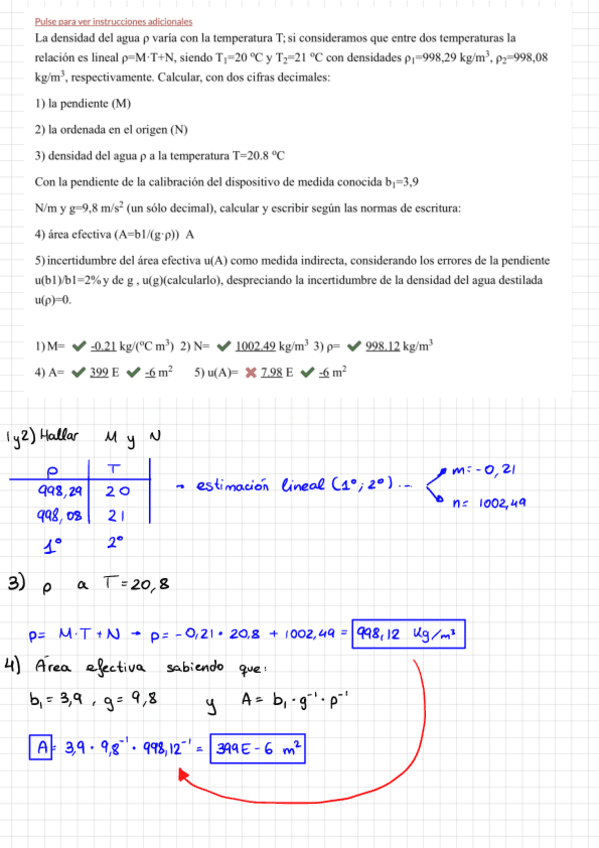 Pulse para ver instrucciones adicionales
La densidad del agua ρ varía con la temperatura T; si consideramos que entre dos temperaturas la
relación es lineal ρ=M·T+N, siendo T₁=20 ºC y T₂=21 ºC con densidades ρ₁=998,29 kg/m³, ρ₂=998,08
kg/m³, respectivamente. Calcular, con dos cifras decimales:
1) la pendiente (M)
2) la ordenada en el origen (N)
3) densidad del agua ρ a la temperatura T=20.8 ºC
Con la pendiente de la calibración del dispositivo de medida conocida b₁=3,9
N/m y g=9,8 m/s² (un sólo decimal), calcular y escribir según las normas de escritura:
4) área efectiva (A=b1/(g·ρ)) A
5) incertidumbre del área efectiva u(A) como medida indirecta, considerando los errores de la pendiente
u(b1)/b1=2% y de g , u(g)(calcularlo), despreciando la incertidumbre de la densidad del agua destilada
u(ρ)=0.
1) M= ✔ -0.21 kg/(ºC m³) 2) N= ✔ 1002.49 kg/m³ 3) ρ= ✔ 998.12 kg/m³
4) A= ✔ 399 E ✔ -6 m² 5) u(A)= ✖ 7.98 E ✔ -6 m²
1 y 2) Hallar M y N
ρ T
998,29 20
998,08 21
1º 2º
→ estimación lineal (1º; 2º) ...
m= -0,21
n= 1002,49
3) ρ a T=20,8
ρ= M·T+N → ρ= -0,21·20,8 + 1002,49 = 998,12 Kg/m³
4) Área efectiva sabiendo que:
b₁=3,9 , g=9,8 y A= b₁·g⁻¹·ρ⁻¹
A = 3,9·9,8⁻¹·998,12⁻¹ = 399E-6 m²